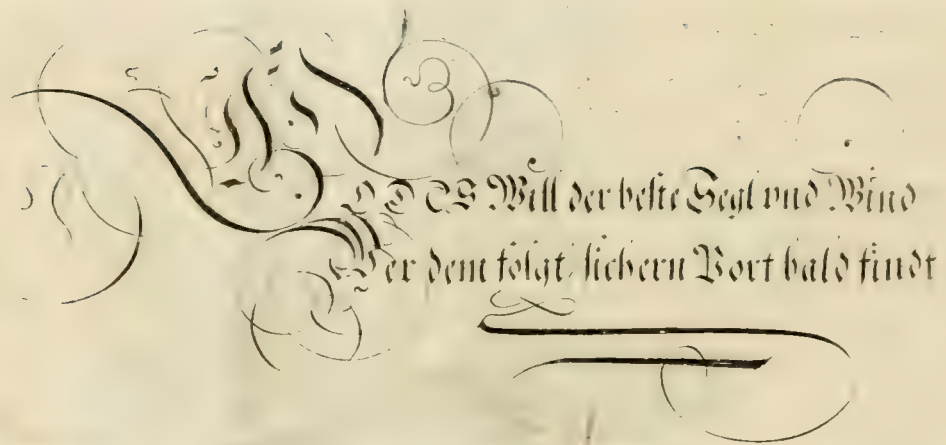 GOTES Will der beste Segl vnd Wind
Wer dem folgt, sichern Port bald findt